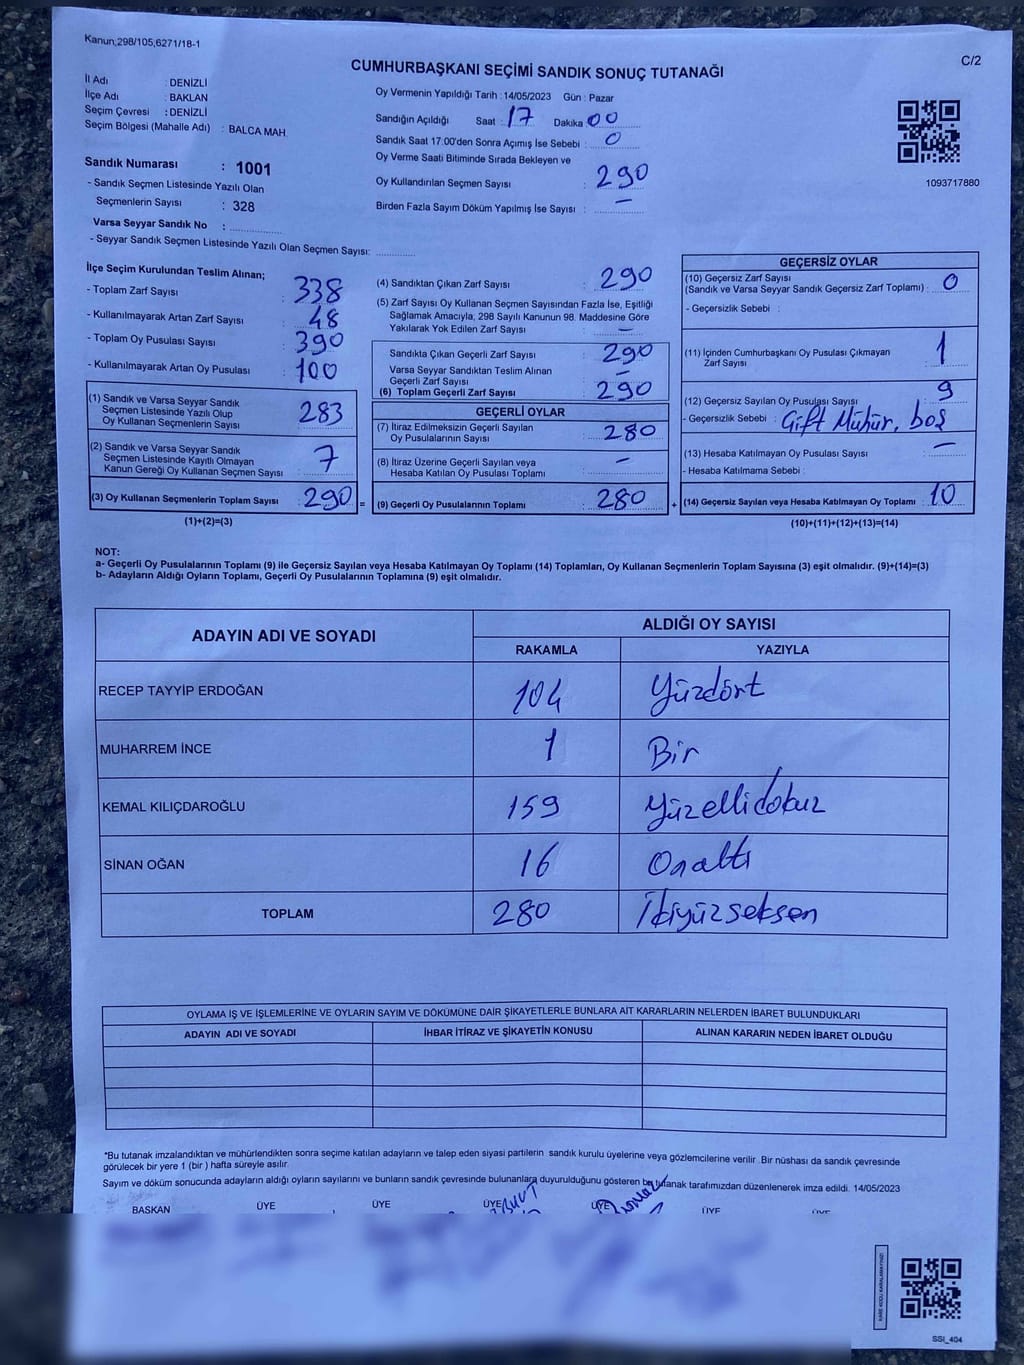 Kanun;298/105,6271/18-1
C/2
CUMHURBAŞKANI SEÇİMİ SANDIK SONUÇ TUTANAĞI
İl Adı : DENİZLİ
İlçe Adı : BAKLAN
Seçim Çevresi : DENİZLİ
Seçim Bölgesi (Mahalle Adı) : BALCA MAH.
Sandık Numarası : 1001
- Sandık Seçmen Listesinde Yazılı Olan
Seçmenlerin Sayısı : 328
Varsa Seyyar Sandık No :
- Seyyar Sandık Seçmen Listesinde Yazılı Olan Seçmen Sayısı:
Oy Vermenin Yapıldığı Tarih : 14/05/2023 Gün : Pazar
Sandığın Açıldığı Saat : 17 Dakika : 00
Sandık Saat 17:00'den Sonra Açımış İse Sebebi : 0
Oy Verme Saati Bitiminde Sırada Bekleyen ve
Oy Kullandırılan Seçmen Sayısı : 290
Birden Fazla Sayım Döküm Yapılmış İse Sayısı : —
1093717880
İlçe Seçim Kurulundan Teslim Alınan;
- Toplam Zarf Sayısı : 338
- Kullanılmayarak Artan Zarf Sayısı : 48
- Toplam Oy Pusulası Sayısı : 390
- Kullanılmayarak Artan Oy Pusulası : 100
(1) Sandık ve Varsa Seyyar Sandık
Seçmen Listesinde Yazılı Olup
Oy Kullanan Seçmenlerin Sayısı : 283
(2) Sandık ve Varsa Seyyar Sandık
Seçmen Listesinde Kayıtlı Olmayan
Kanun Gereği Oy Kullanan Seçmen Sayısı : 7
(3) Oy Kullanan Seçmenlerin Toplam Sayısı : 290 =
(1)+(2)=(3)
(4) Sandıktan Çıkan Zarf Sayısı : 290
(5) Zarf Sayısı Oy Kullanan Seçmen Sayısından Fazla İse, Eşitliği
Sağlamak Amacıyla, 298 Sayılı Kanunun 98. Maddesine Göre
Yakılarak Yok Edilen Zarf Sayısı : —
Sandıkta Çıkan Geçerli Zarf Sayısı : 290
Varsa Seyyar Sandıktan Teslim Alınan
Geçerli Zarf Sayısı : —
(6) Toplam Geçerli Zarf Sayısı : 290
GEÇERLİ OYLAR
(7) İtiraz Edilmeksizin Geçerli Sayılan
Oy Pusulalarının Sayısı : 280
(8) İtiraz Üzerine Geçerli Sayılan veya
Hesaba Katılan Oy Pusulası Toplamı : —
(9) Geçerli Oy Pusulalarının Toplamı : 280 +
GEÇERSİZ OYLAR
(10) Geçersiz Zarf Sayısı
(Sandık ve Varsa Seyyar Sandık Geçersiz Zarf Toplamı) : 0
- Geçersizlik Sebebi :
(11) İçinden Cumhurbaşkanı Oy Pusulası Çıkmayan
Zarf Sayısı : 1
(12) Geçersiz Sayılan Oy Pusulası Sayısı : 9
- Geçersizlik Sebebi : Çift Mühür, boş
(13) Hesaba Katılmayan Oy Pusulası Sayısı : —
- Hesaba Katılmama Sebebi :
(14) Geçersiz Sayılan veya Hesaba Katılmayan Oy Toplamı : 10
(10)+(11)+(12)+(13)=(14)
NOT:
a- Geçerli Oy Pusulalarının Toplamı (9) ile Geçersiz Sayılan veya Hesaba Katılmayan Oy Toplamı (14) Toplamları, Oy Kullanan Seçmenlerin Toplam Sayısına (3) eşit olmalıdır. (9)+(14)=(3)
b- Adayların Aldığı Oyların Toplamı, Geçerli Oy Pusulalarının Toplamına (9) eşit olmalıdır.
ADAYIN ADI VE SOYADI ALDIĞI OY SAYISI
RAKAMLA YAZIYLA
RECEP TAYYİP ERDOĞAN 104 Yüzdört
MUHARREM İNCE 1 Bir
KEMAL KILIÇDAROĞLU 159 Yüzellidokuz
SİNAN OĞAN 16 Onaltı
TOPLAM 280 İkiyüzseksen
OYLAMA İŞ VE İŞLEMLERİNE VE OYLARIN SAYIM VE DÖKÜMÜNE DAİR ŞİKAYETLERLE BUNLARA AİT KARARLARIN NELERDEN İBARET BULUNDUKLARI
ADAYIN ADI VE SOYADI İHBAR İTİRAZ VE ŞİKAYETİN KONUSU ALINAN KARARIN NEDEN İBARET OLDUĞU
*Bu tutanak imzalandıktan ve mühürlendikten sonra seçime katılan adayların ve talep eden siyasi partilerin sandık kurulu üyelerine veya gözlemcilerine verilir .Bir nüshası da sandık çevresinde
görülecek bir yere 1 (bir ) hafta süreyle asılır.
Sayım ve döküm sonucunda adayların aldığı oyların sayılarını ve bunların sandık çevresinde bulunanlara duyurulduğunu gösteren bu tutanak tarafımızdan düzenlenerek imza edildi. 14/05/2023
BAŞKAN ÜYE ÜYE ÜYE ÜYE ÜYE ÜYE
SSI_404